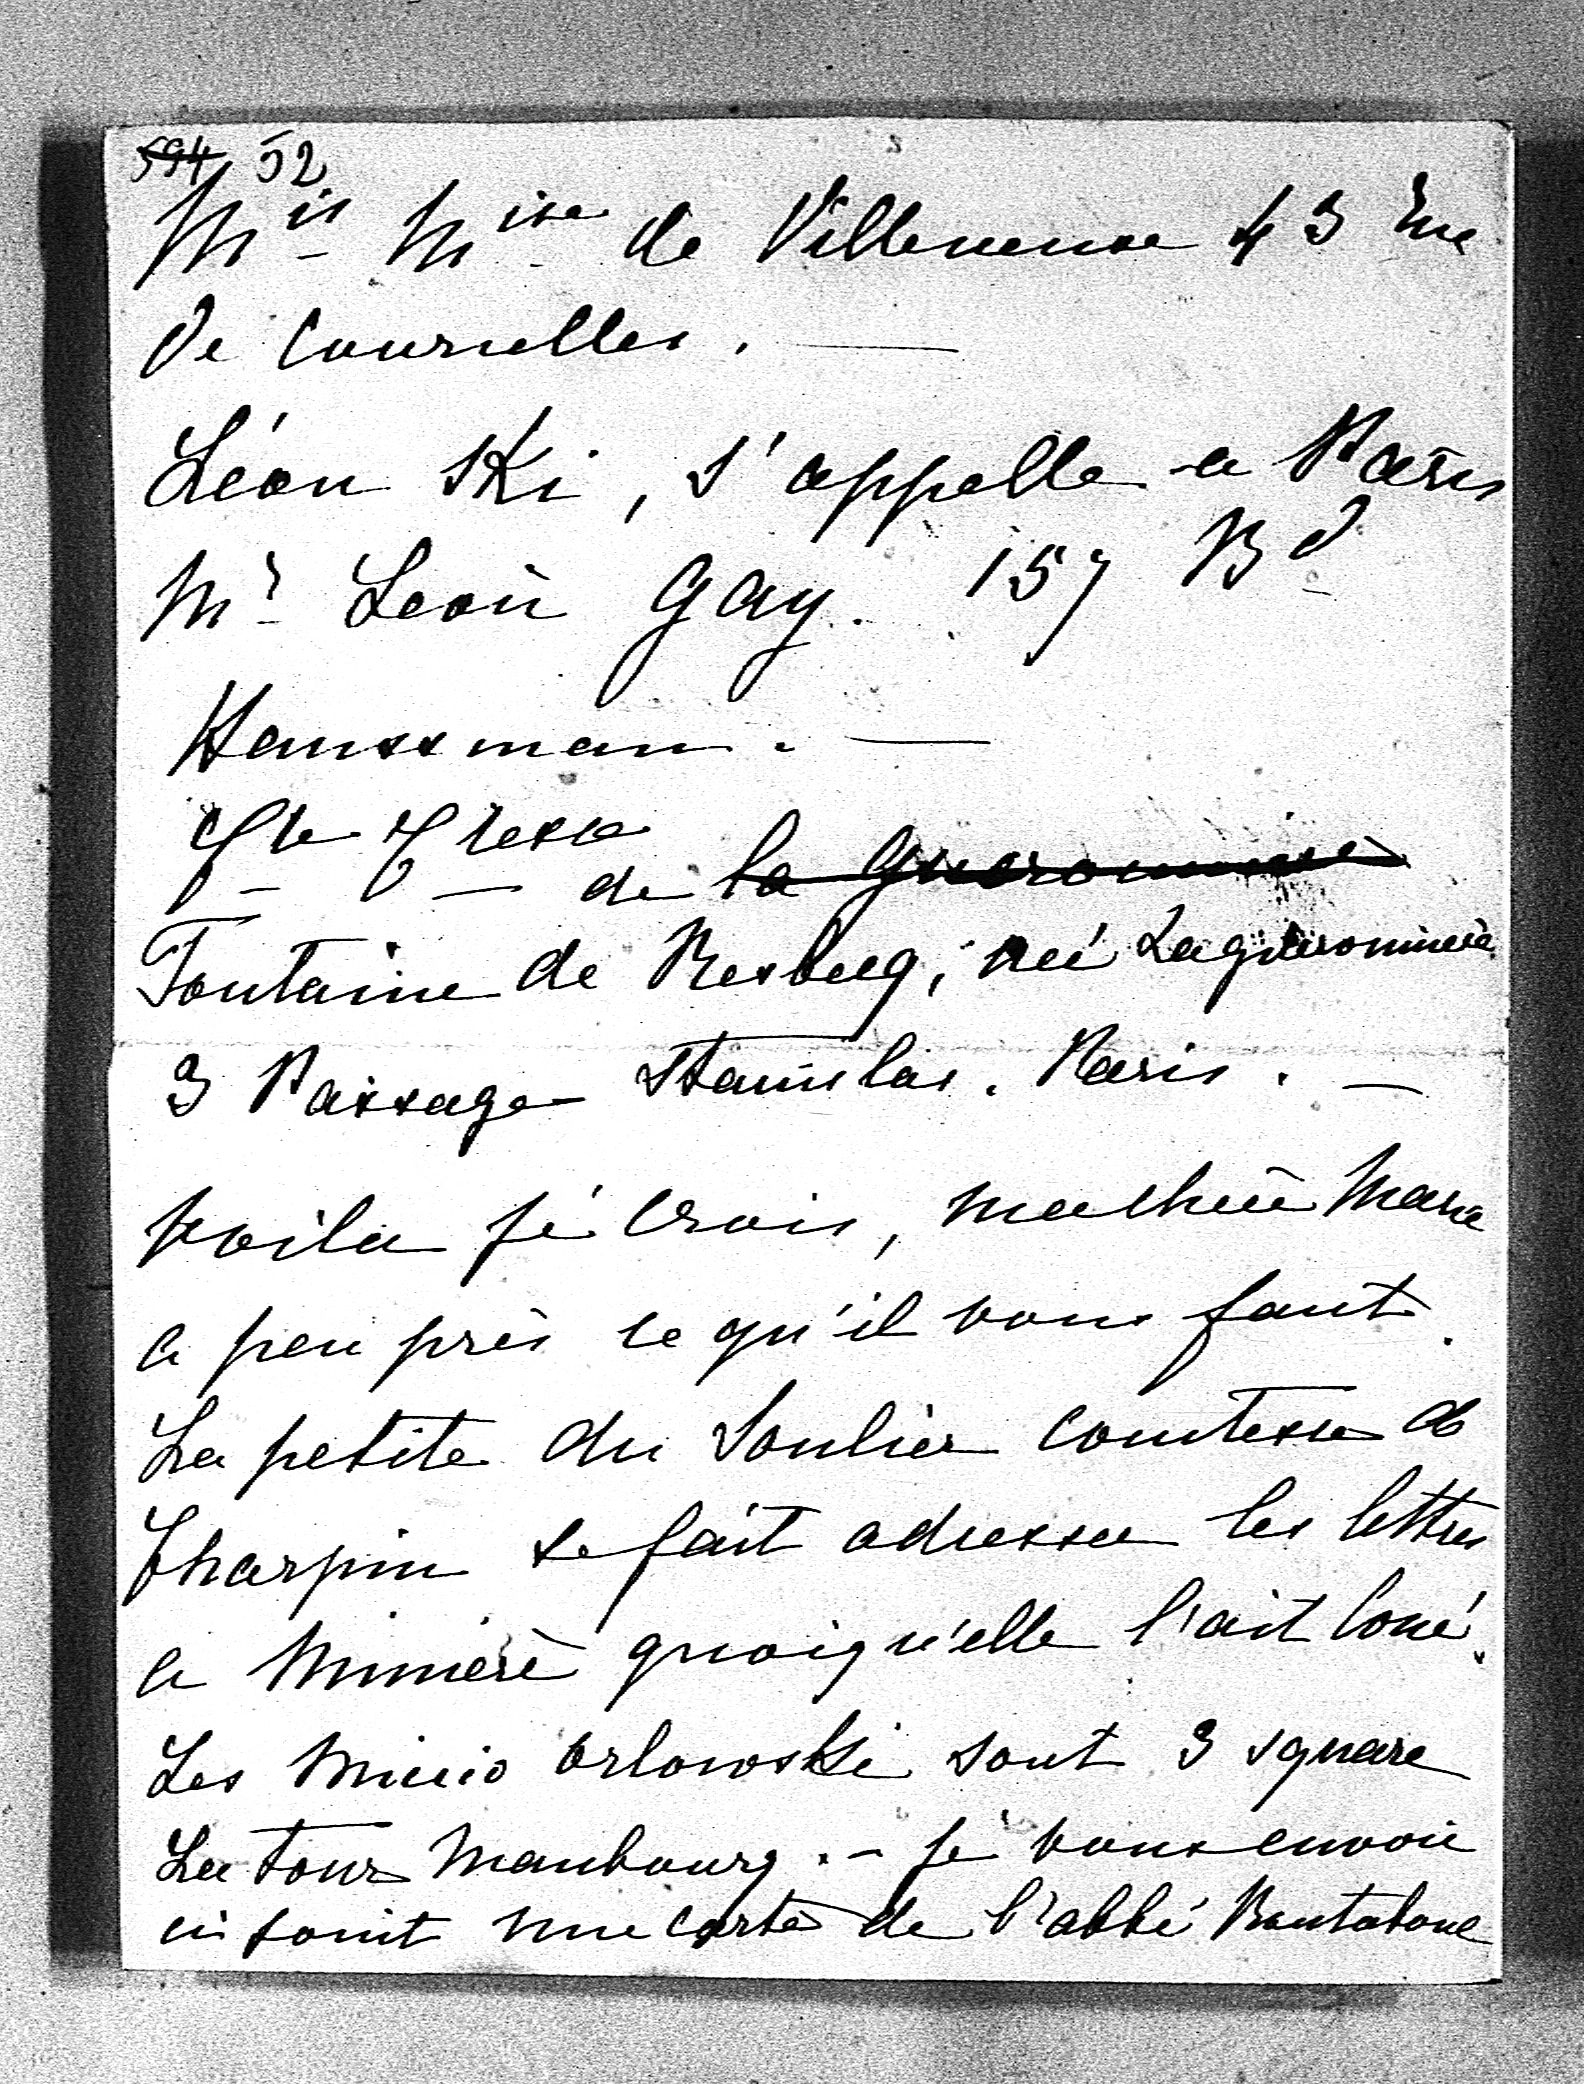 594 52
Mis Mise de Villeneuve 43 rue
de Courcelles. —
Léon Ski, s'appelle a Paris
Mr Leon Gay. 157 Bd
Haussman. —
Cte Ctesse de la Gueronnière
Fontaine de Resbecq, née Lagueronniere
3 Passage Stanislas. Paris. —
Voila je crois, ma chère Marie
a peu près ce qu'il vous faut.
La petite du Soulier comtesse de
Charpin se fait adresser les lettres
a quoiqu'elle l'ait loué.
Les Orlowski sont 3 square
La Tour Maubourg. - Je vous envoie
ci joint une carte de l'abbé